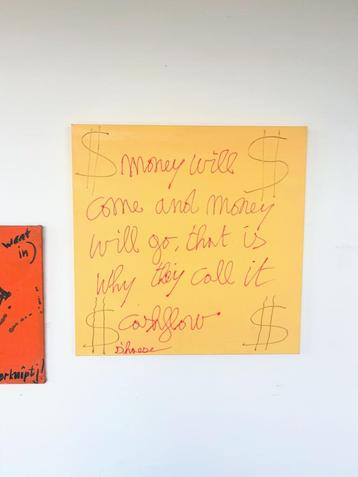 $ money will $
come and money
will go, that is
why they call it
$ cashflow $
want
in)